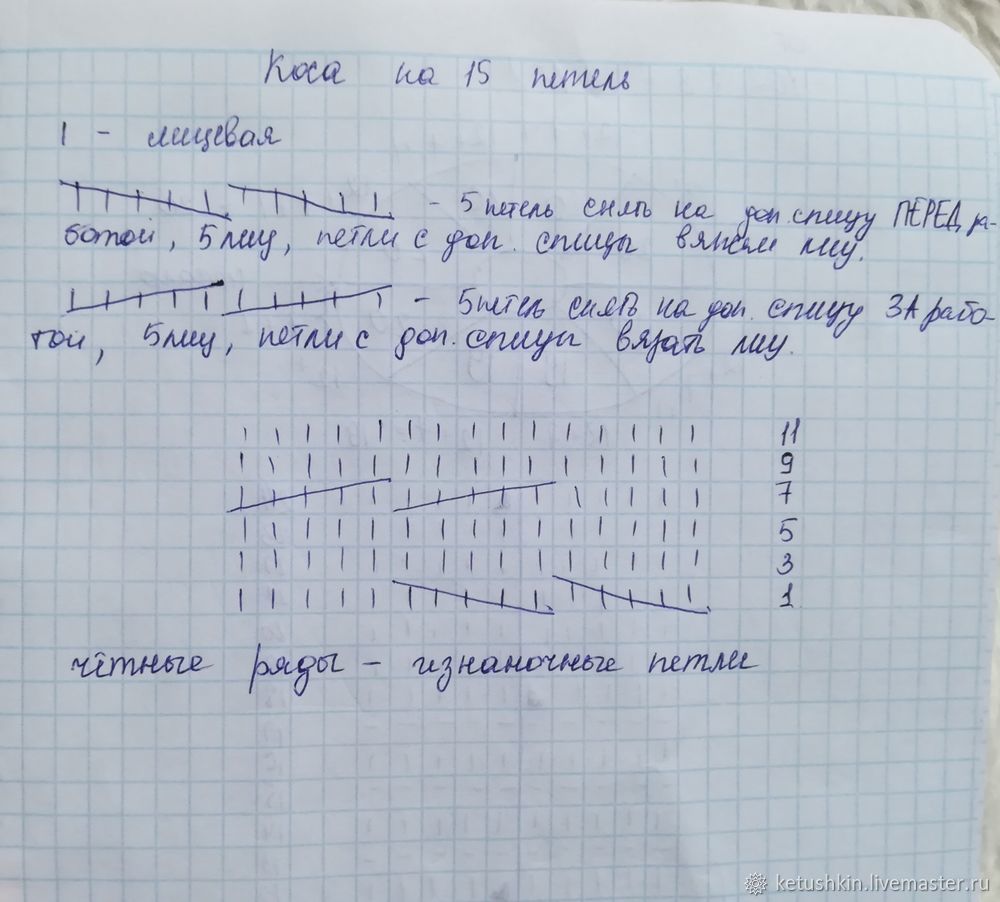 Коса на 15 петель
| - лицевая
- 5 петель снять на доп. спицу ПЕРЕД ра-
ботой, 5 лиц, петли с доп. спицы вяжем лиц.
- 5 петель снять на доп. спицу ЗА рабо-
той, 5 лиц, петли с доп. спицы вязать лиц.
| | | | | | | | | | | | | | | 11
| | | | | | | | | | | | | | | 9
| | | | | | | | | | | | | | | 7
| | | | | | | | | | | | | | | 5
| | | | | | | | | | | | | | | 3
| | | | | | | | | | | | | | | 1
чётные ряды - изнаночные петли
ketushkin.livemaster.ru